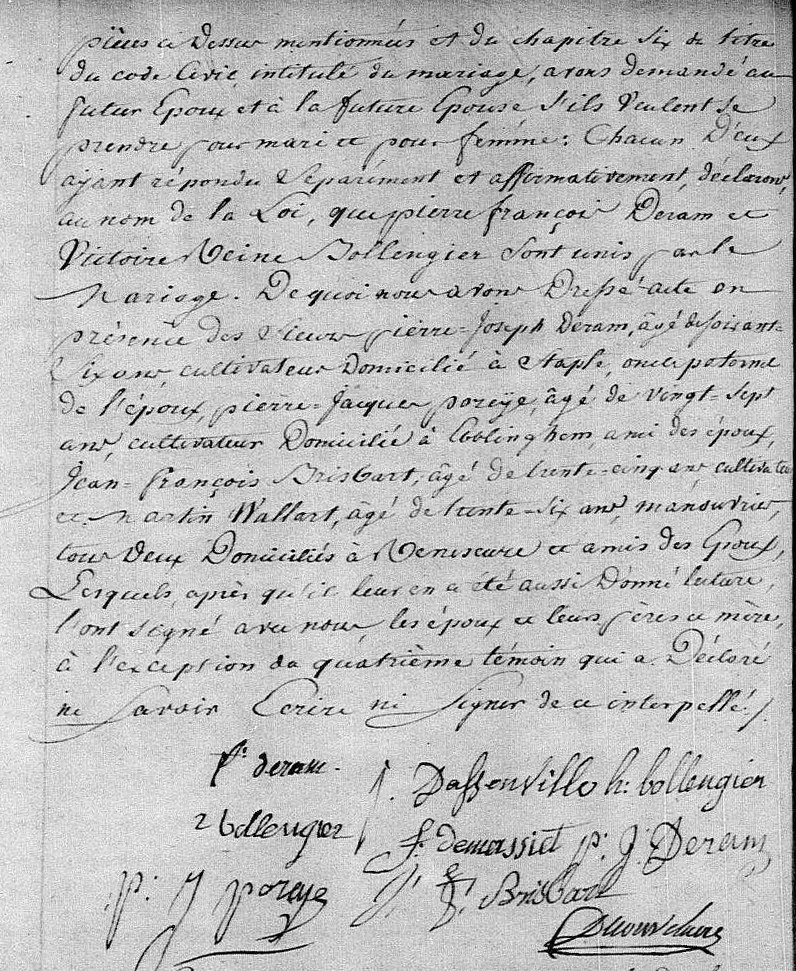 pièces ci Dessus mentionnées et du chapitre six du titre
du code Civil intitulé du mariage, avons demandé au
futur Epoux et à la future Epouse s'ils Veulent se
prendre pour mari et pour femme: Chacun D'eux
ayant répondu Séparément et affirmativement, déclarons,
au nom de la Loi, que pierre françois Deram et
Victoire Reine Bollengier Sont unis par le
Mariage. De quoi nous avons Dressé acte en
présence des Sieurs pierre-Joseph Deram, âgé de soixante-
Six ans, cultivateur Domicilié à Staple, oncle paternel
de l'époux, pierre-Jacques poreye, âgé de vingt-sept
ans, cultivateur Domicilié à Ebblinghem, ami des époux,
Jean-François Brisbart, âgé de trente-cinq ans, cultivateur
et Martin Wallart, âgé de trente-six ans, manouvrier,
tous Deux Domiciliés à Renescure et amis des Epoux,
Lesquels, après qu'il leur en a été aussi Donné lecture,
l'ont signé avec nous, les époux et leurs pères et mère,
à l'exception du quatrième témoin qui a Déclaré
ne Savoir Ecrire ni Signer de ce interpellé./.
pr. deram
J. Dassonville h: bollengier
bollengier
f. demassiet p: J: Deram
p: J poreye
J: f: Brisbart